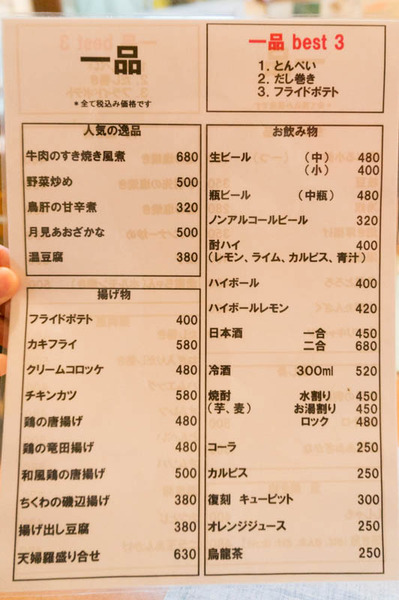 一品
*全て税込み価格です
一品 best 3
1. とんぺい
2. だし巻き
3. フライドポテト
人気の逸品
牛肉のすき焼き風煮 680
野菜炒め 500
鳥肝の甘辛煮 320
月見あおざかな 500
温豆腐 380
揚げ物
フライドポテト 400
カキフライ 580
クリームコロッケ 480
チキンカツ 580
鶏の唐揚げ 480
鶏の竜田揚げ 480
和風鶏の唐揚げ 500
ちくわの磯辺揚げ 380
揚げ出し豆腐 380
天婦羅盛り合せ 630
お飲み物
生ビール (中) 480
(小) 400
瓶ビール (中瓶) 480
ノンアルコールビール 320
酎ハイ 400
(レモン、ライム、カルピス、青汁)
ハイボール 400
ハイボールレモン 420
日本酒 一合 450
二合 680
冷酒 300ml 520
焼酎 水割り 450
(芋、麦) お湯割り 450
ロック 480
コーラ 250
カルピス 250
復刻 キューピット 300
オレンジジュース 250
烏龍茶 250